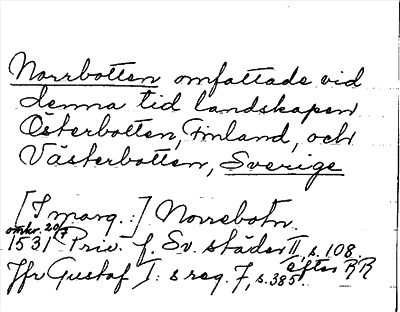 Norrbotten omfattade vid
denna tid landskapen
Österbotten, Finland, och
Västerbotten, Sverige
[I marg.:] Norrebotn.
omkr. 20/7
1531 Priv. f. Sv. städer II, s. 108.
efter RR
Jfr Gustaf I: s reg. 7, s. 385